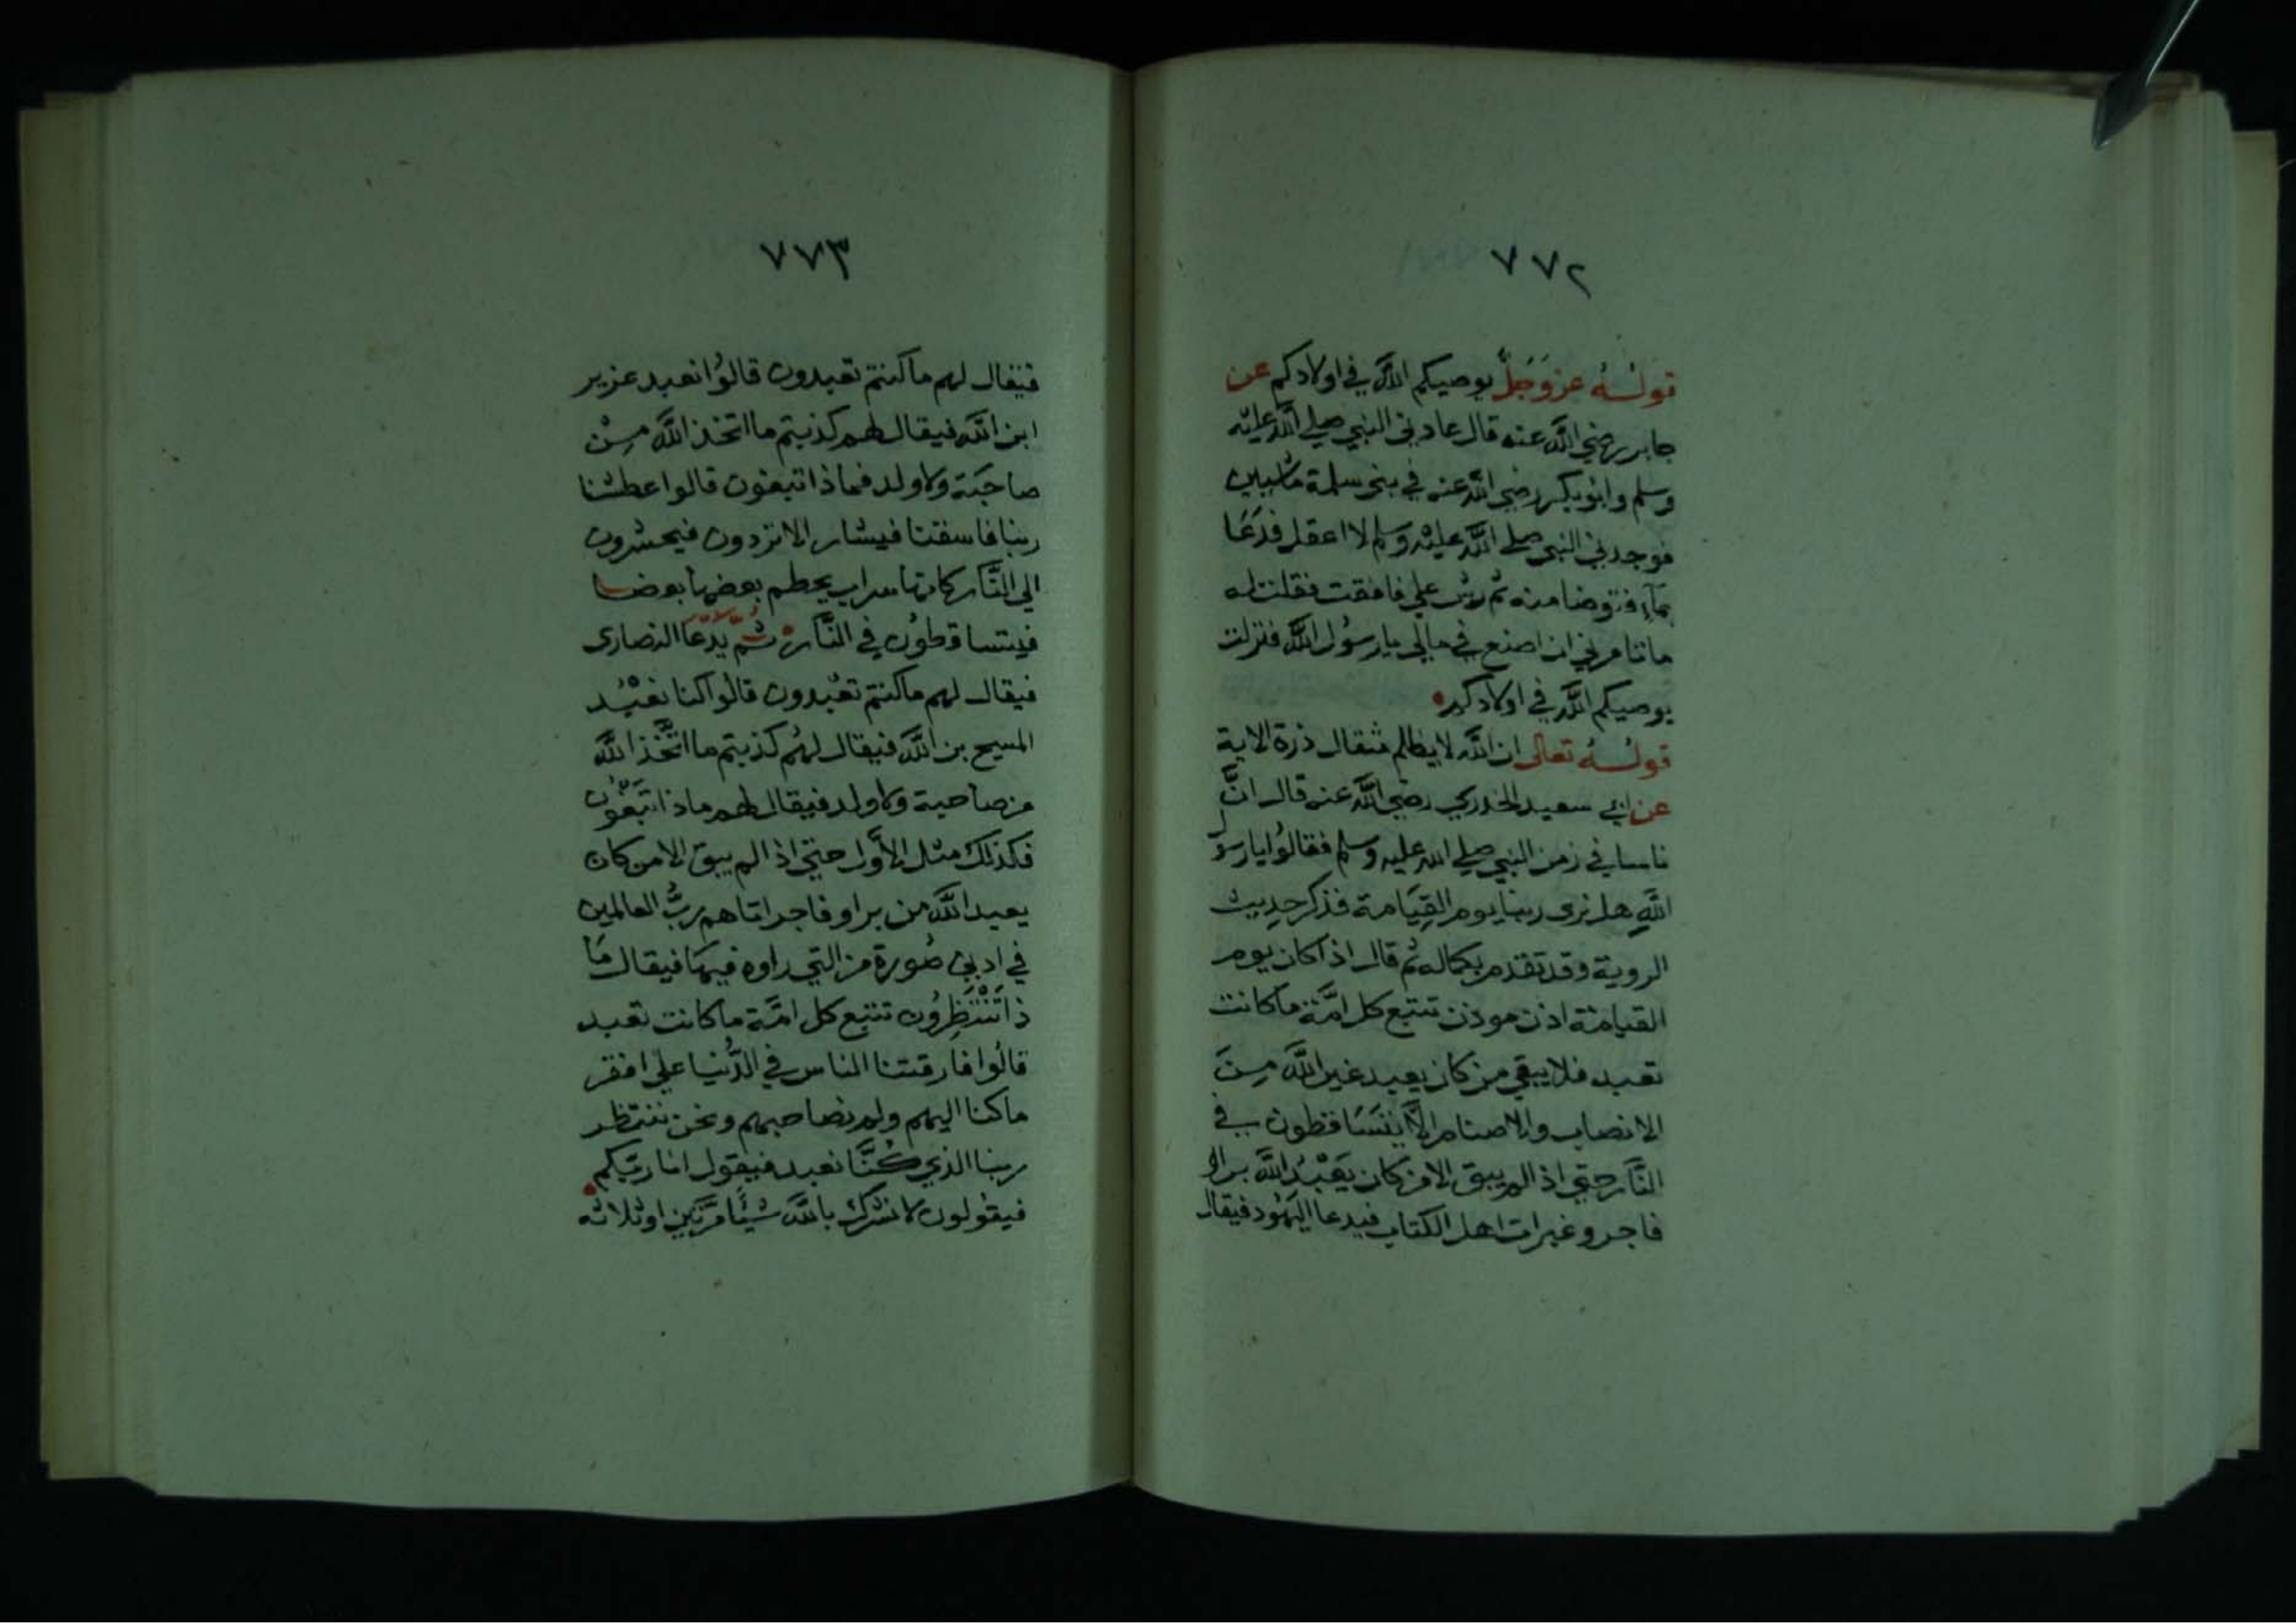 ٧٧٢
قولُهُ عز وَجَلَّ يوصيكم الله في اولادكم عن
جابر رضي الله عنه قال عادني النبي صلي الله عليه
وسلم وابو بكر رضي الله عنه في بني سلمة ماشيين
فوجدني النبي صلي الله عليه وسلم لا اعقل فدَعَا
بمآء فتوضا منه ثم رش علي فافقت فقلت له
ما تامرني ان اصنع في مالي يا رسول الله فنزلت
يوصيكم الله في اولادكم
قولُهُ تعالى ان الله لا يظلم مثقال ذرة الاية
عن ابي سعيد الخدري رضي الله عنه قال انَّ
ناسا في زمن النبي صلي الله عليه وسلم فقالوا يا رسول
اللهِ هل نرى ربنا يوم القِيَامة فذكر حديث
الروية وقد تقدم بكماله ثم قال اذا كان يوم
القيامة اذن موذن تتبع كل امَّة ما كانت
تعبد فلا يبقي من كان يعبد غير الله مِنَ
الانصاب والاصنام الَّا يتسَاقطون في
النَّار حتي اذا لم يبق الا من كان يَعْبُدُ الله بر او
فاجر وغبرات اهل الكتاب فيدعا اليَهُود فيقال
٧٧٣
فيقال لهم ما كنتم تعبدون قالوُا نعبد عزير
ابن الله فيقال لهم كذبتم ما اتخذ الله مِنْ
صاحبَة ولا ولد فماذا تبغون قالوا عطشنا
ربنا فاسقنا فيشار الا تردون فيحشرون
الي النَّار كانها سراب يحطم بعضها بعضا
فيتساقطوُن في النَّار ثُمَّ يدّعَا النصارى
فيقال لهم ما كنتم تعبُدون قالوا كنا نعْبُد
المسيح بن الله فيقال لهُم كذبتم ما اتَّخَذ الله
من صاحبة ولا ولد فيقال لهم ماذا تبَغُون
فكذلك مثل الأوَّل حتي اذا لم يبق الا من كان
يعبد الله من بر او فاجر اتاهم ربُّ العالمين
في ادني صُورة من التي راوه فيهَا فيقال مَا
ذا تَنْتَظِرُون تتبع كل امَّة ما كانت تعبد
قالُوا فارقنا الناس في الدُّنيا علي افقر
ما كنا اليهم ولم نصاحبهم ونحن ننتظر
ربنا الذي كُنَّا نعبد فيقول انا ربّكم
فيقوُلون لا نشرك بالله شيئًا مرَّتين او ثلاثه